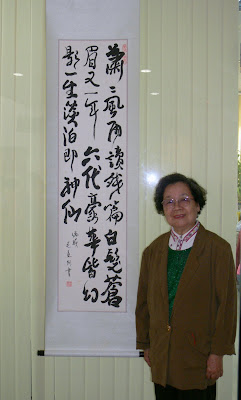 蕭々風雨讀殘篇白髮蒼
眉又一年六代豪華皆幻
影一生淡泊即神仙